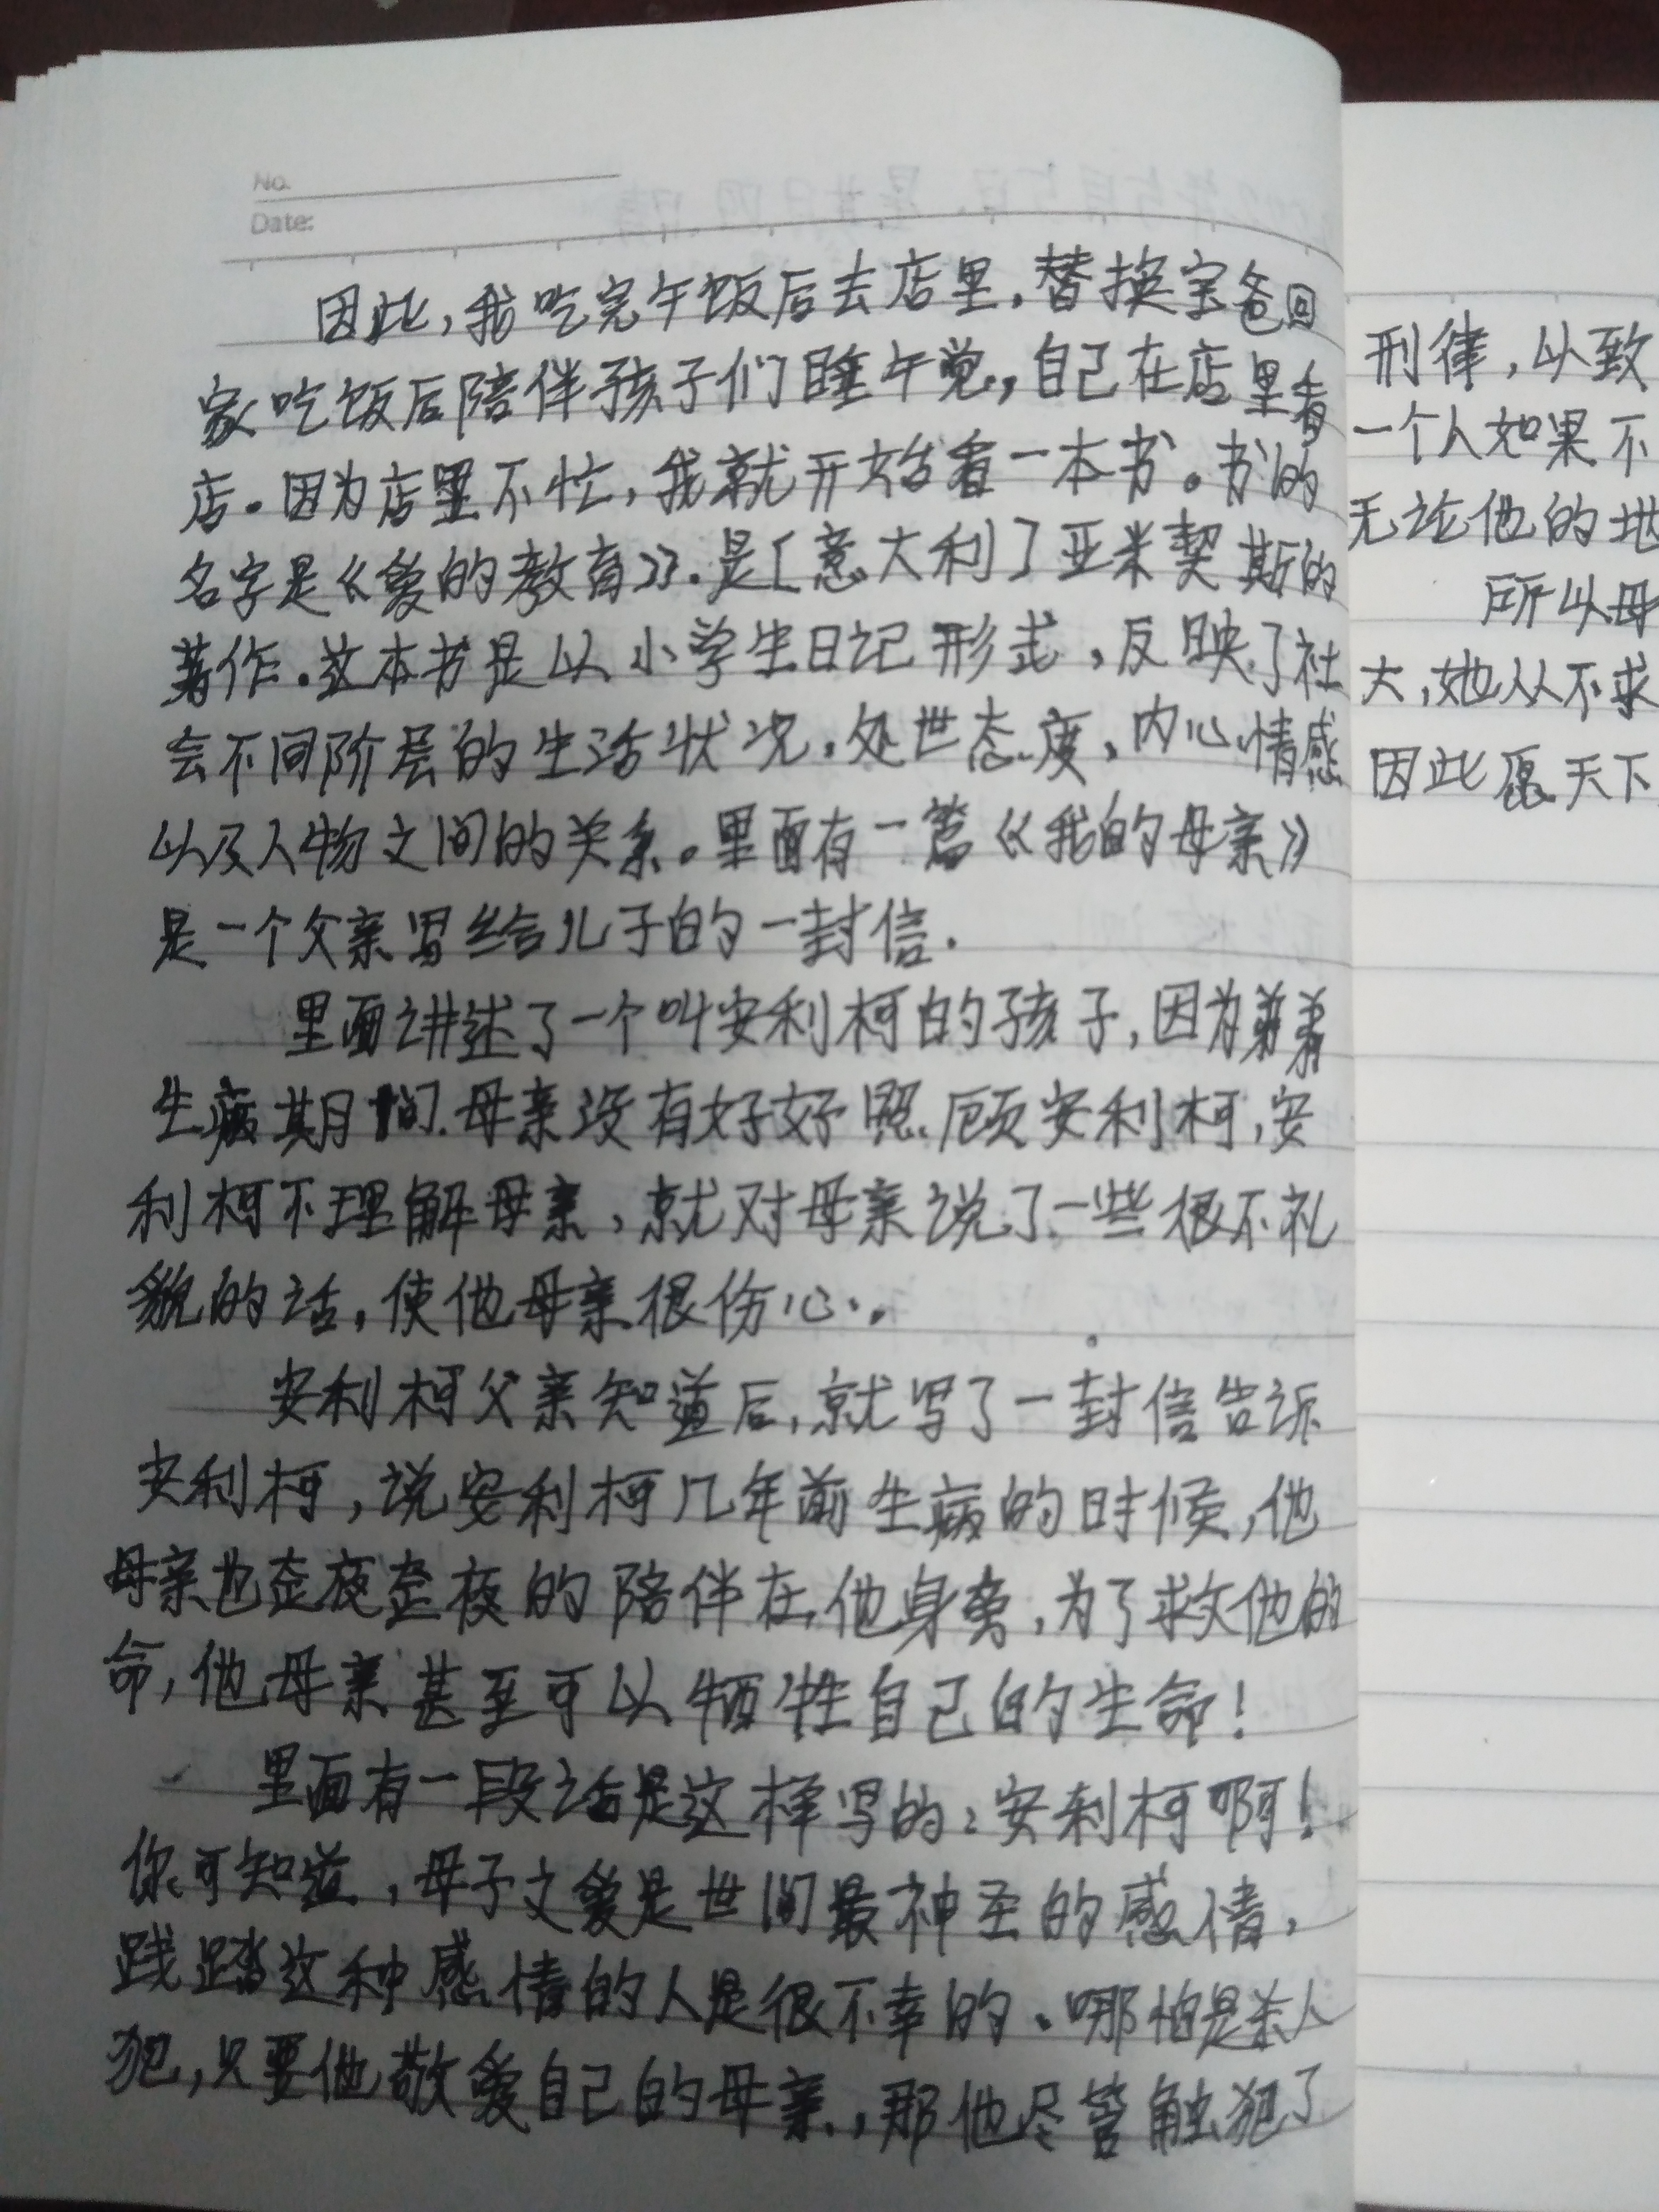 No.
Date:
因此,我吃完午饭后去店里,替换宝爸回
家吃饭后陪伴孩子们睡午觉,自己在店里看
店。因为店里不忙,我就开始看一本书。书的
名字是《爱的教育》.是[意大利]亚米契斯的
著作.这本书是以小学生日记形式,反映了社
会不同阶层的生活状况,处世态度,内心情感
以及人物之间的关系。里面有一篇《我的母亲》
是一个父亲写给儿子的一封信.
里面讲述了一个叫安利柯的孩子,因为弟弟
生病期间.母亲没有好好照顾安利柯,安
利柯不理解母亲,就对母亲说了一些很不礼
貌的话,使他母亲很伤心.
安利柯父亲知道后,就写了一封信告诉
安利柯,说安利柯几年前生病的时候,他
母亲也整夜整夜的陪伴在他身旁,为了救他的
命,他母亲甚至可以牺牲自己的生命!
里面有一段话是这样写的:安利柯啊!
你可知道,母子之爱是世间最神圣的感情,
践踏这种感情的人是很不幸的.哪怕是杀人
犯,只要他敬爱自己的母亲,那他尽管触犯了
刑律,以致
一个人如果不
无论他的地
所以母
大,她从不求
因此愿天下